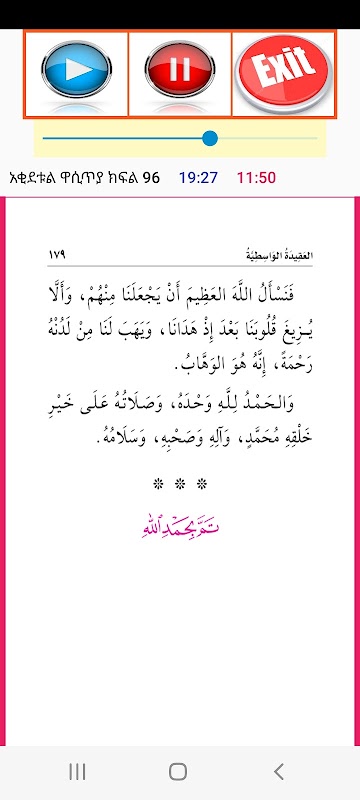 Exit
አቂደቱል ዋሲጥያ ክፍል 96 19:27 11:50
العَقِيدَةُ الوَاسِطِيَّةُ ١٧٩
فَنَسْأَلُ اللَّهَ العَظِيمَ أَنْ يَجْعَلَنَا مِنْهُمْ، وَأَلَّا
يُـزِيغَ قُلُوبَنَا بَعْدَ إِذْ هَدَانَا، وَيَهَبَ لَنَا مِنْ لَدُنْهُ
رَحْمَةً، إِنَّهُ هُوَ الوَهَّابُ.
وَالـحَمْدُ لِلَّهِ وَحْدَهُ، وَصَلَاتُهُ عَلَـى خَـيْرِ
خَلْقِهِ مُحَمَّدٍ، وَآلِهِ وَصَحْبِهِ، وَسَلَامُهُ.
تَمَّ بِحَمْدِ اللهِ